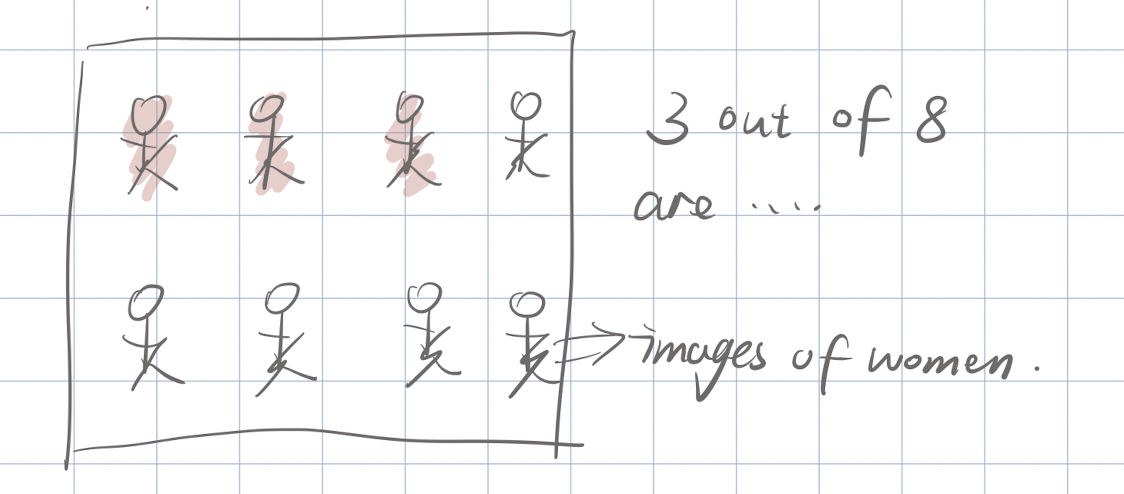 3 out of 8
are ....
images of women.